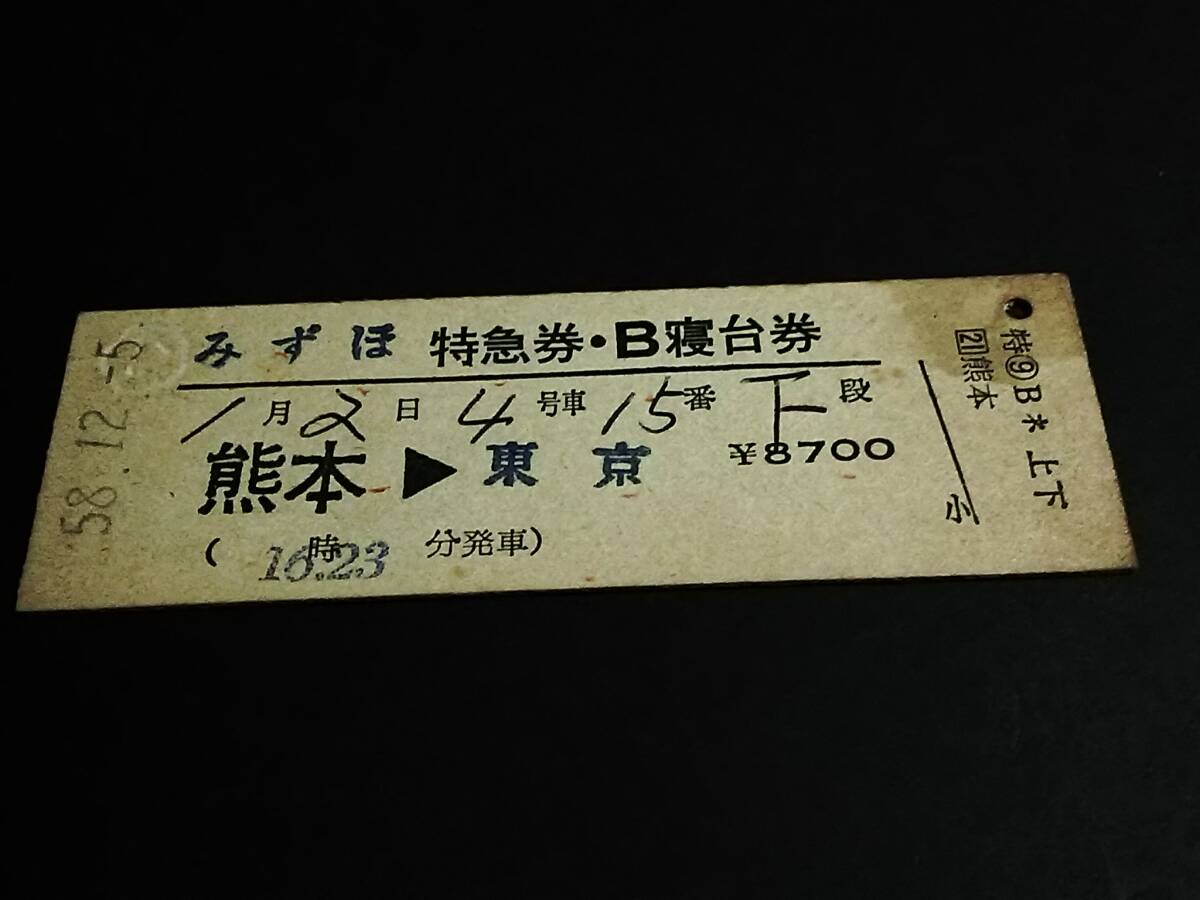 58.12.-5
みずほ 特急券・B寝台券
1月2日4号車15番下段
熊本▶東京 ¥8700
(16時23分発車)
小
特⑨B*上下
21熊本